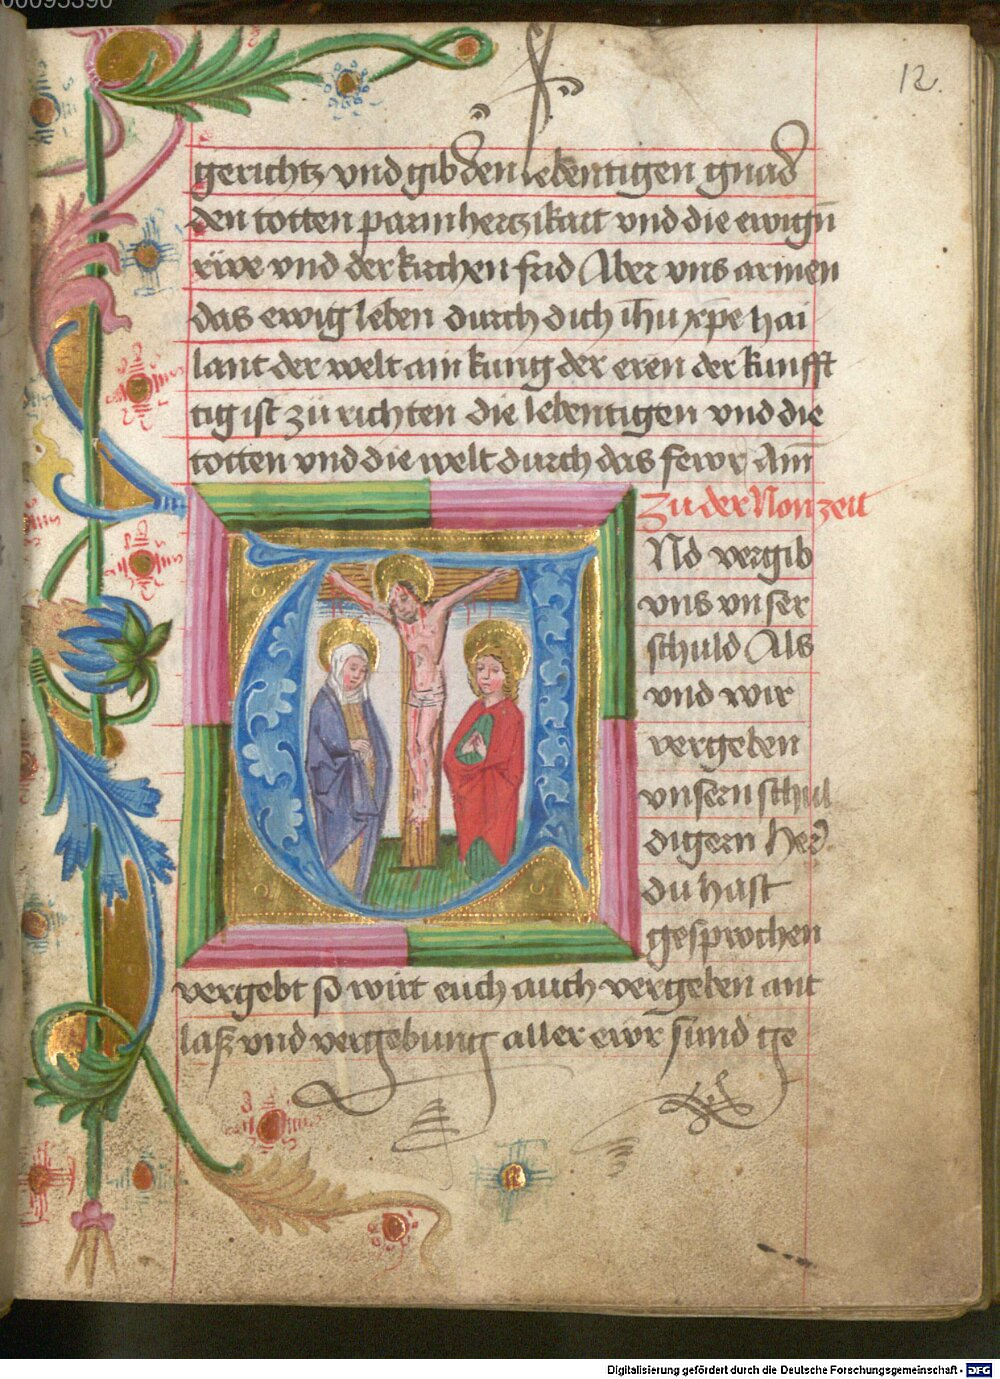 00095390
12.
gerichtz vnd gib den lebentigen gnad
den totten parmhertzikait vnd die ewign̄
rüwe vnd der kirchen frid Aber vns armen
das ewig leben durch dich ih̄u xp̄e hai
lant der welt ain kung der eren der kunfft
tig ist zü richten die lebentigen vnd die
totten vnd die welt durch das fewr Am̄
Zu der Non zeit
VNd vergib
vns vnser
schuld Als
vnd wir
vergeben
vnsern schul
digern Her
du hast
gesprochen
vergebt so wirt euch auch vergeben ant
laß vnd vergebung aller ewr sund ge
Digitalisierung gefördert durch die Deutsche Forschungsgemeinschaft - DFG